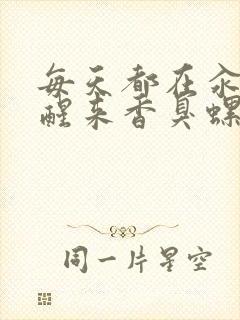 每天都在汆
醒来香臭螺
同一片星空